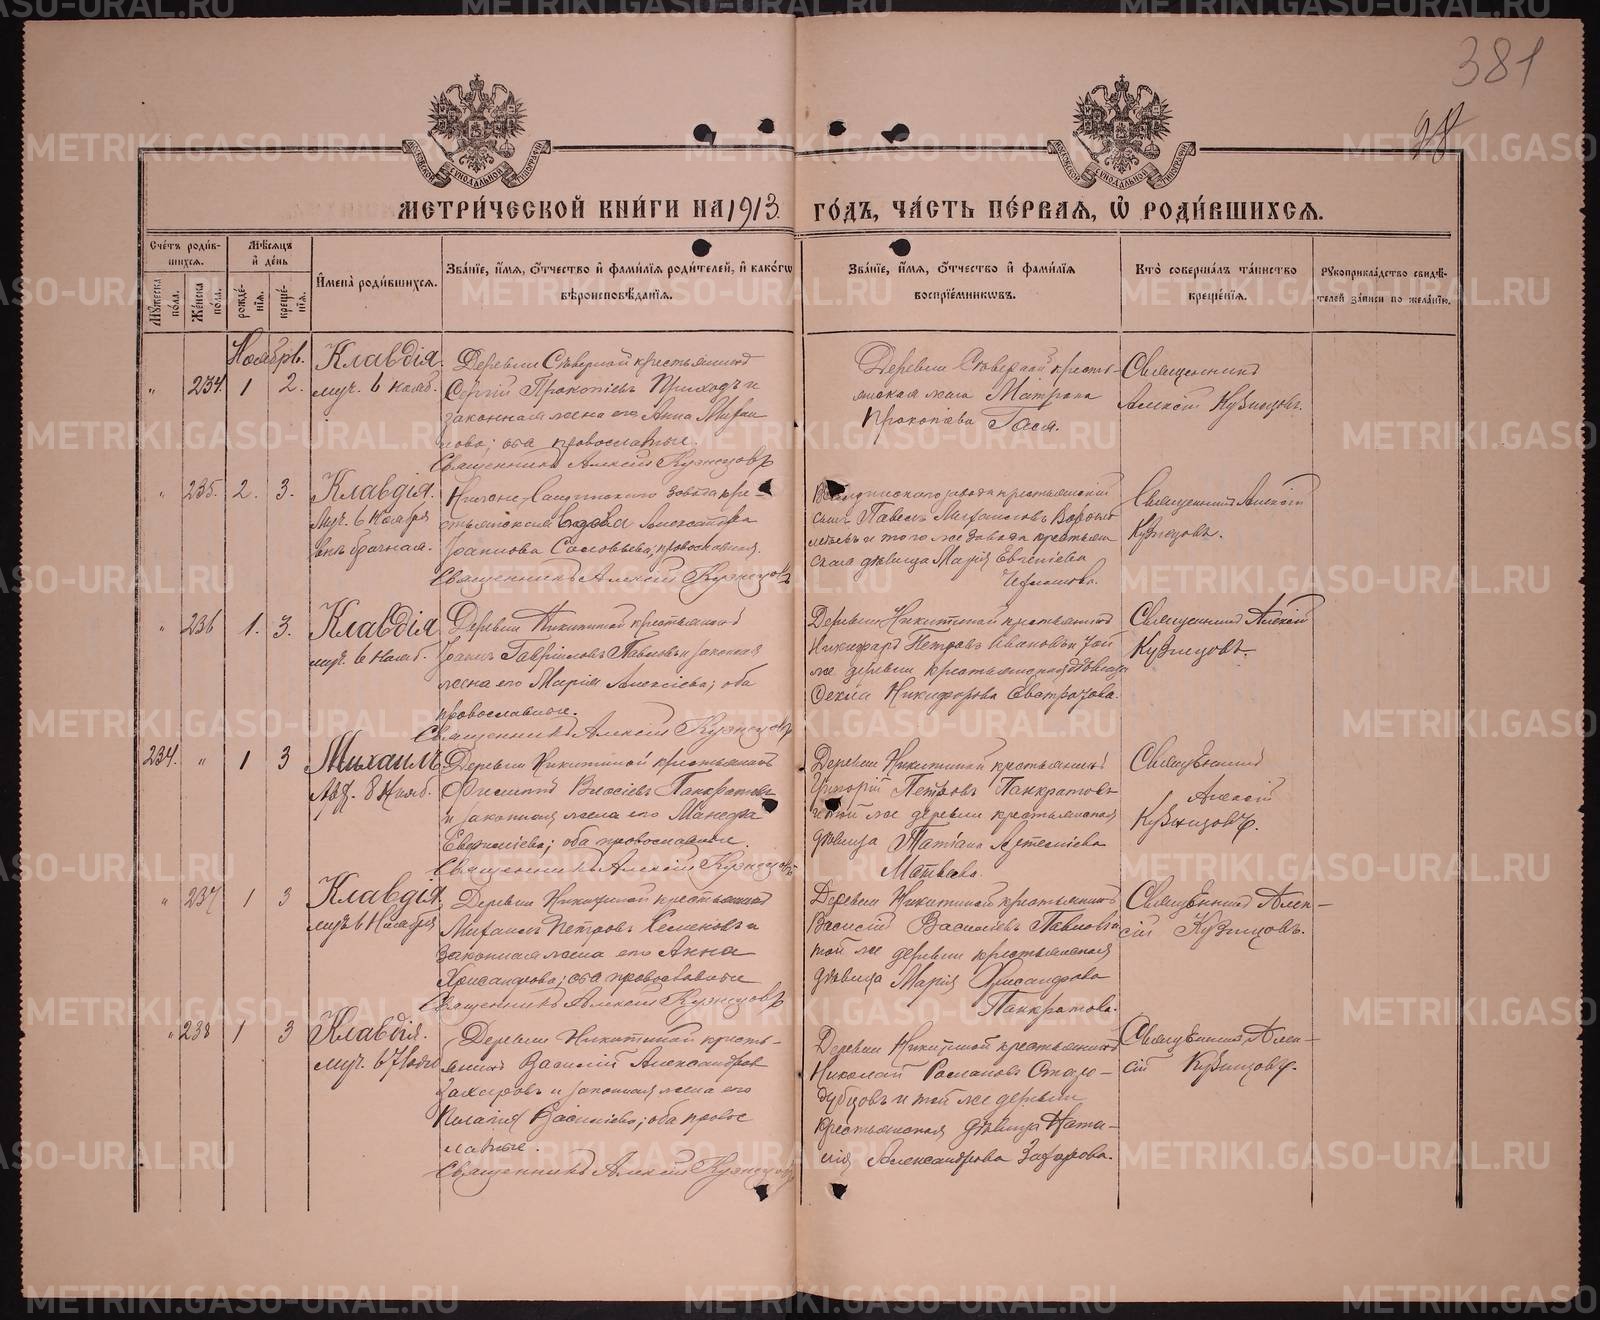 381
28
МЕТРИ́ЧЕСКОЙ КНИ́ГИ НА 1913 ГО́ДЪ, ЧА́СТЬ ПЕ́РВАЯ, Ѡ҆ РОДИ́ВШИХСЯ.
Сче́тъ роди́вшихся.
Мѣ́сяцъ и҆ де́нь
Мꙋ́жеска по́ла.
Же́нска по́ла.
рожде́нїя.
креще́нїя.
И҆мена̀ роди́вшихся.
Зва́нїе, и҆́мя, ѻ҆́тчество и҆ фами́лїя роди́телей, и҆ како́гѡ вѣроисповѣ́данїя.
Зва́нїе, и҆́мя, ѻ҆́тчество и҆ фами́лїя воспрїе́мникѡвъ.
Кто̀ соверша́лъ та́инство креще́нїя.
Рꙋкоприкла́дство свидѣ́телей за́писи по жела́нїю.
Ноябрь.
" 234. 1 2.
Клавдія.
муч. 6 нояб.
Деревни Сѣверной крестьянинъ
Сергій Прокопіевъ и
законная жена его Анна
оба православные.
Священникъ Алексій Кузнецовъ
Деревни Сѣверной кресть-
янская жена Матрона
Прокопіева
Священникъ
Алексій Кузнецовъ.
" 235. 2. 3.
Клавдія.
Муч. 6 Ноября
внѣбрачная.
завода кре-
стьянская вдова Александра
Іоаннова Соловьева; православная.
Священникъ Алексій Кузнецовъ
завода крестьянскій
сынъ Павелъ
и того же завода крестьян
ская дѣвица Марія Евгеніева
Священникъ Алексій
Кузнецовъ.
" 236 1. 3.
Клавдія
муч. 6 Нояб.
Деревни Никитиной крестьянинъ
Іоаннъ Гавріиловъ Павловъ и законная
жена его Марія Алексіева; оба
православные.
Священникъ Алексій Кузнецовъ
Деревни Никитиной крестьянинъ
Никифоръ Петровъ Ивановъ и той
же деревни крестьянская
Ѳекла Никифорова
Священникъ Алексій
Кузнецовъ.
234. " 1 3
Михаилъ
8 Нояб.
Деревни Никитиной крестьянинъ
Власіевъ Панкратовъ
и законная жена его
оба православные.
Священникъ Алексій Кузнецовъ
Деревни Никитиной крестьянинъ
Григорій Петровъ Панкратовъ
и той же деревни крестьянская
дѣвица Татіана
Матвѣева.
Священникъ
Алексій
Кузнецовъ.
" 237 1 3
Клавдія
муч. 6 Ноября
Деревни Никитиной крестьянинъ
Михаилъ Петровъ Семеновъ и
законная жена его Анна
Хрисанфова; оба православные
Священникъ Алексій Кузнецовъ
Деревни Никитиной крестьянинъ
Василій Васильевъ Павловъ и
той же деревни крестьянская
дѣвица Марія Хрисанфова
Панкратова.
Священникъ Алек-
сій Кузнецовъ.
" 238 1 3
Клавдія.
муч. 6 Нояб
Деревни Никитиной кресть-
янинъ Василій Александровъ
Захаровъ и законная жена его
Пелагія Васильева; оба правос
лавные.
Священникъ Алексій Кузнецовъ
Деревни Никитиной крестьянинъ
Николай Романовъ Старо-
дубцовъ и той же деревни
крестьянская дѣвица Ната-
лія Александрова Захарова.
Священникъ Алек-
сій Кузнецовъ.
METRIKI.GASO-URAL.RU